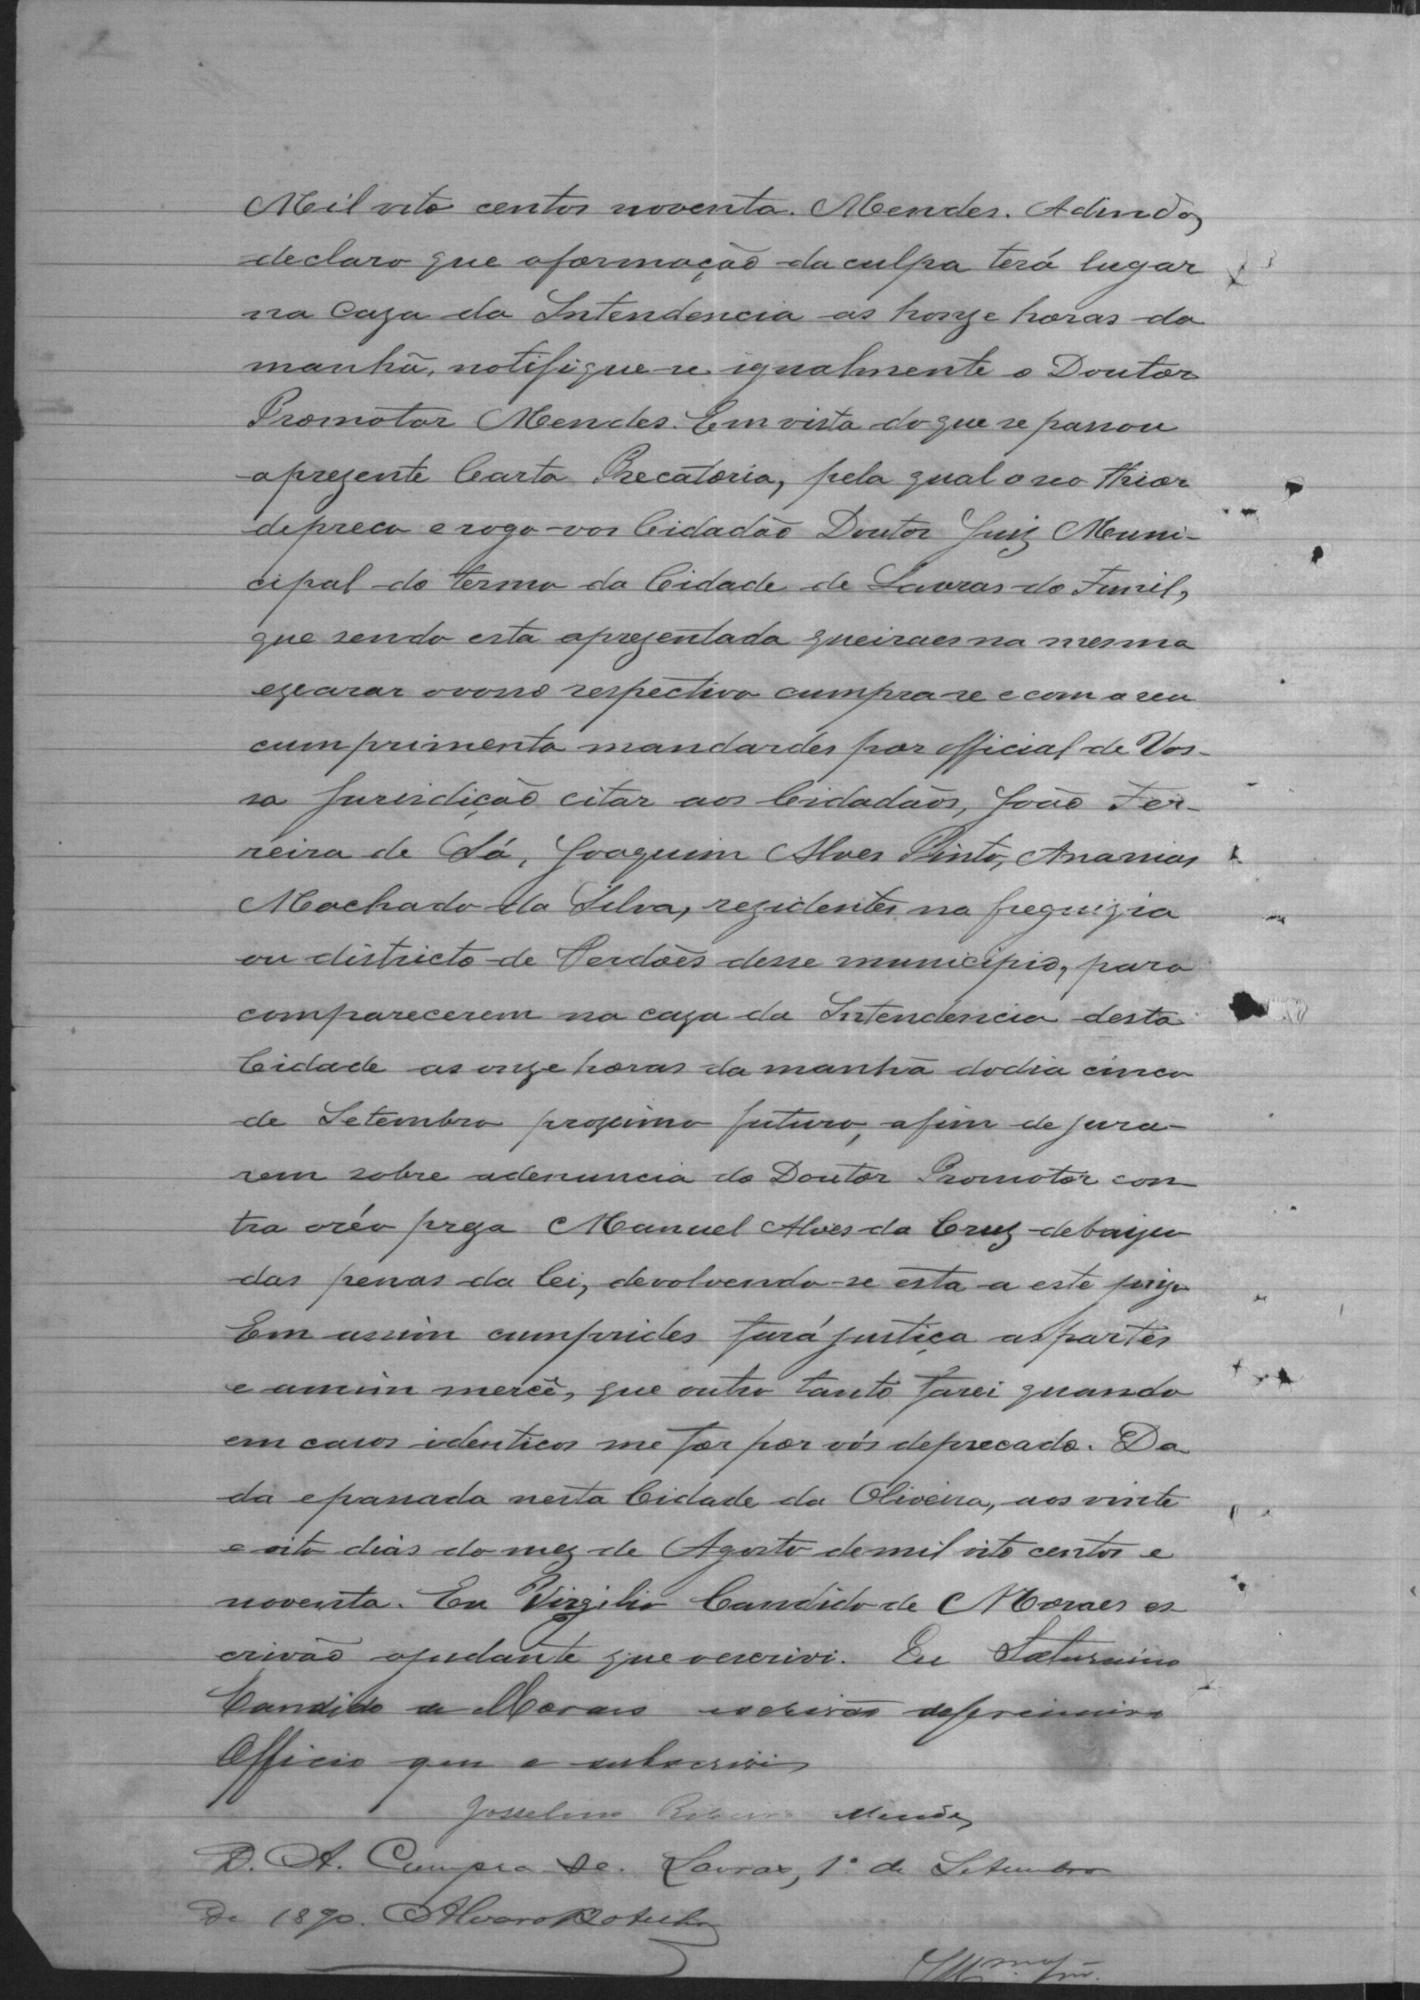 Mil oito centos noventa. Mendes. Adindo,
declaro que aformação da culpa terá lugar
na Caza da Intendencia as honze horas da
manhã, notifique-se igualmente o Doutor
Promotor Mendes. Em vista do que se passou
a prezente Carta Precatoria, pela qual o seo theor
depreco e rogo-vos Cidadão Doutor Juiz Muni-
cipal do termo da Cidade de Lavras do Funil,
que sendo esta aprezentada queiraes na mesma
exarar o vosso respectivo cumpra-se e com o seu
cumprimento mandardes por official de Vos-
sa Jurisdição citar aos Cidadãos, João Fer-
reira de Sá, Joaquim Alves Pinto, Ananias
Machado da Silva, rezidentes na freguizia
ou districto de Perdões desse municipio, para
comparecerem na caza da Intendencia desta
Cidade as onze horas da manhã do dia cinco
de Setembro proximo futuro, afim de jura-
rem sobre a denuncia do Doutor Promotor con
tra oréo preza Manuel Alves da Cruz debaixo
das penas da lei, devolvendo-se esta a este juizo
Em assim cumprides fará justiça as partes
e amim mercê, que outro tanto farei quando
em casos identicos me for por vós deprecado. Da
da e passada nesta Cidade da Oliveira, aos vinte
e oito dias do mez de Agosto de mil oito centos e
noventa. Eu Virgilio Candido de Moraes es
crivão ajudante que o escrivi. Eu Saturnino
Candido de Moraes escrivão do primeiro
Officio que o subscrivi
Josselino Ribeiro Mendes
D. A. Cumpra-se. Lavras, 1º de Setembro
De 1890. Alvaro Botelho
Illmo. Snr.